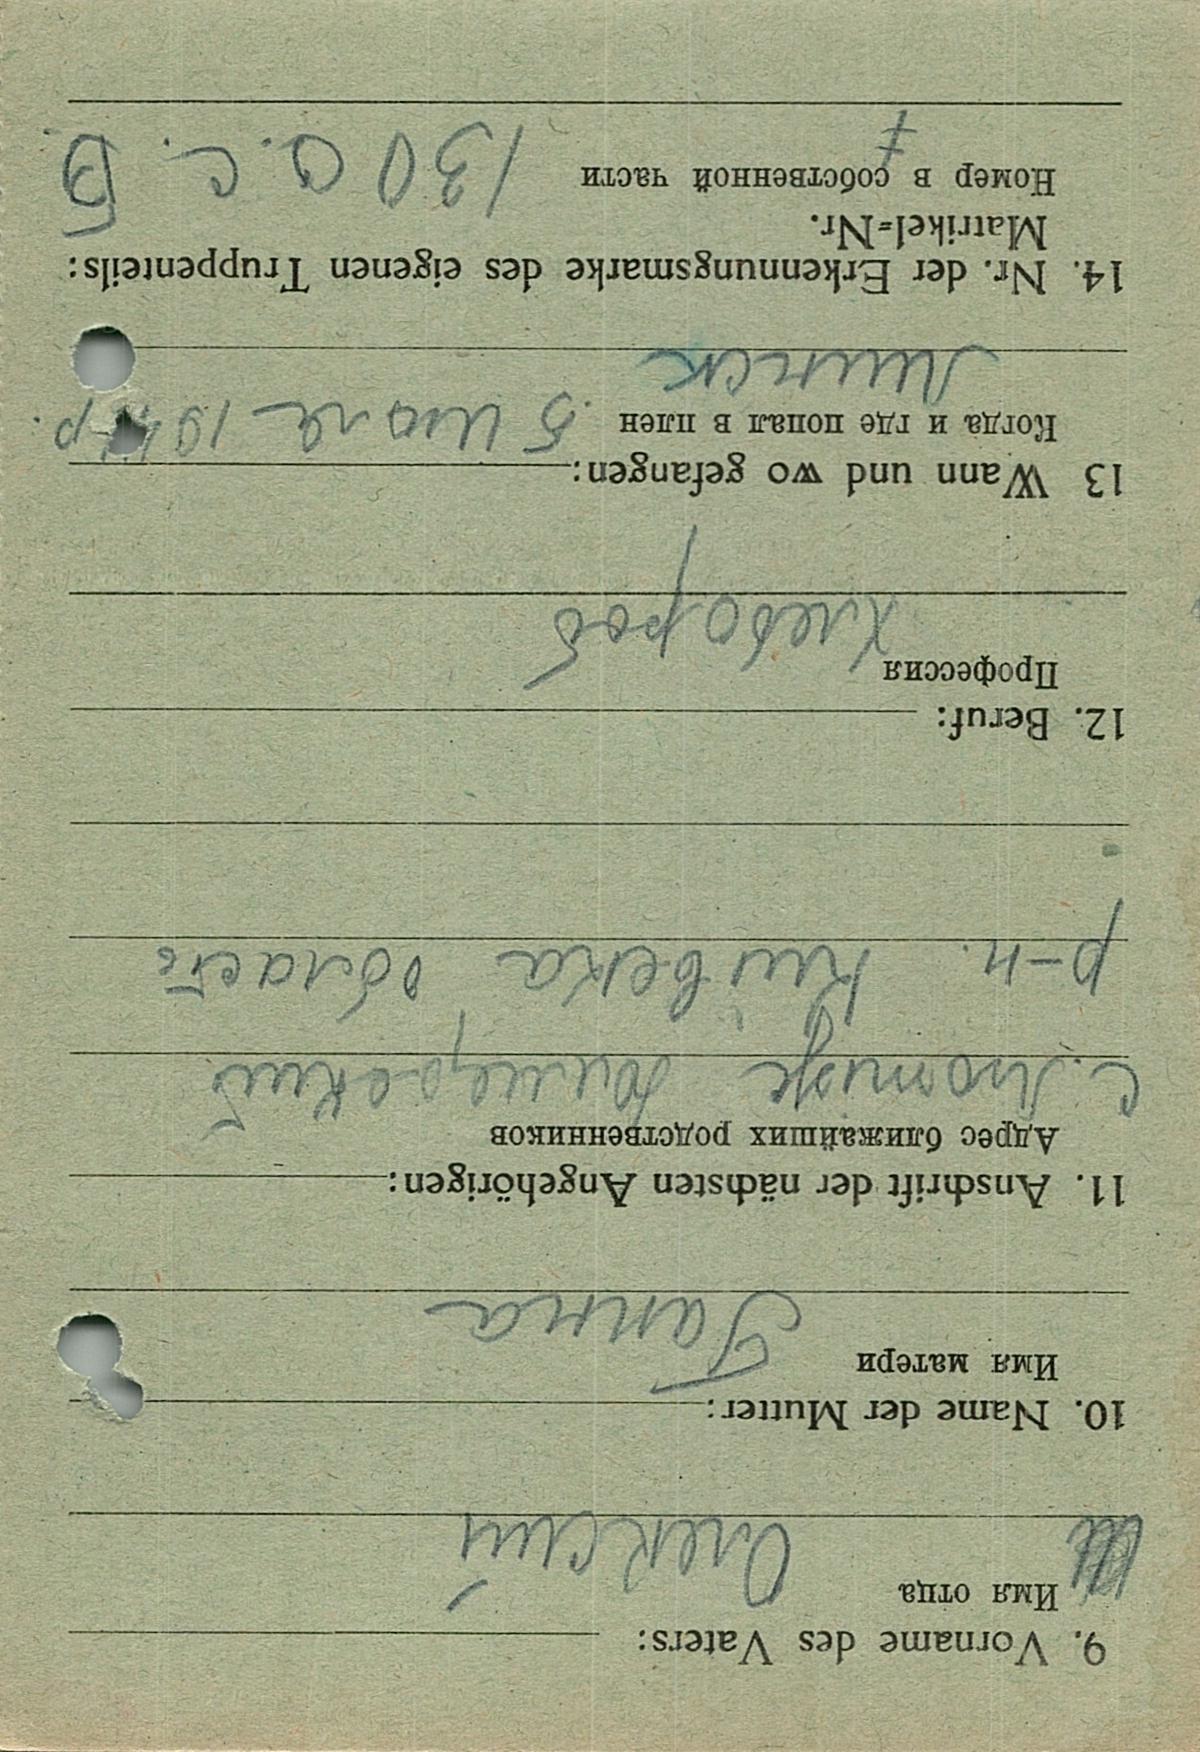 9. Vorname des Vaters:
Имя отца Олексий
10. Name der Mutter:
Имя матери Ганна
11. Anschrift der nächsten Angehörigen:
Адрес ближайших родственников
с. Лютиж
р-н. Київска область
12. Beruf:
Профессия Хлебороб
13 Wann und wo gefangen:
Когда и где попал в плен 5 июля 194 р.
Минск
14. Nr. der Erkennungsmarke des eigenen Truppenteils:
Matrikel=Nr.
Номер в собственной части 130 О. С. Б